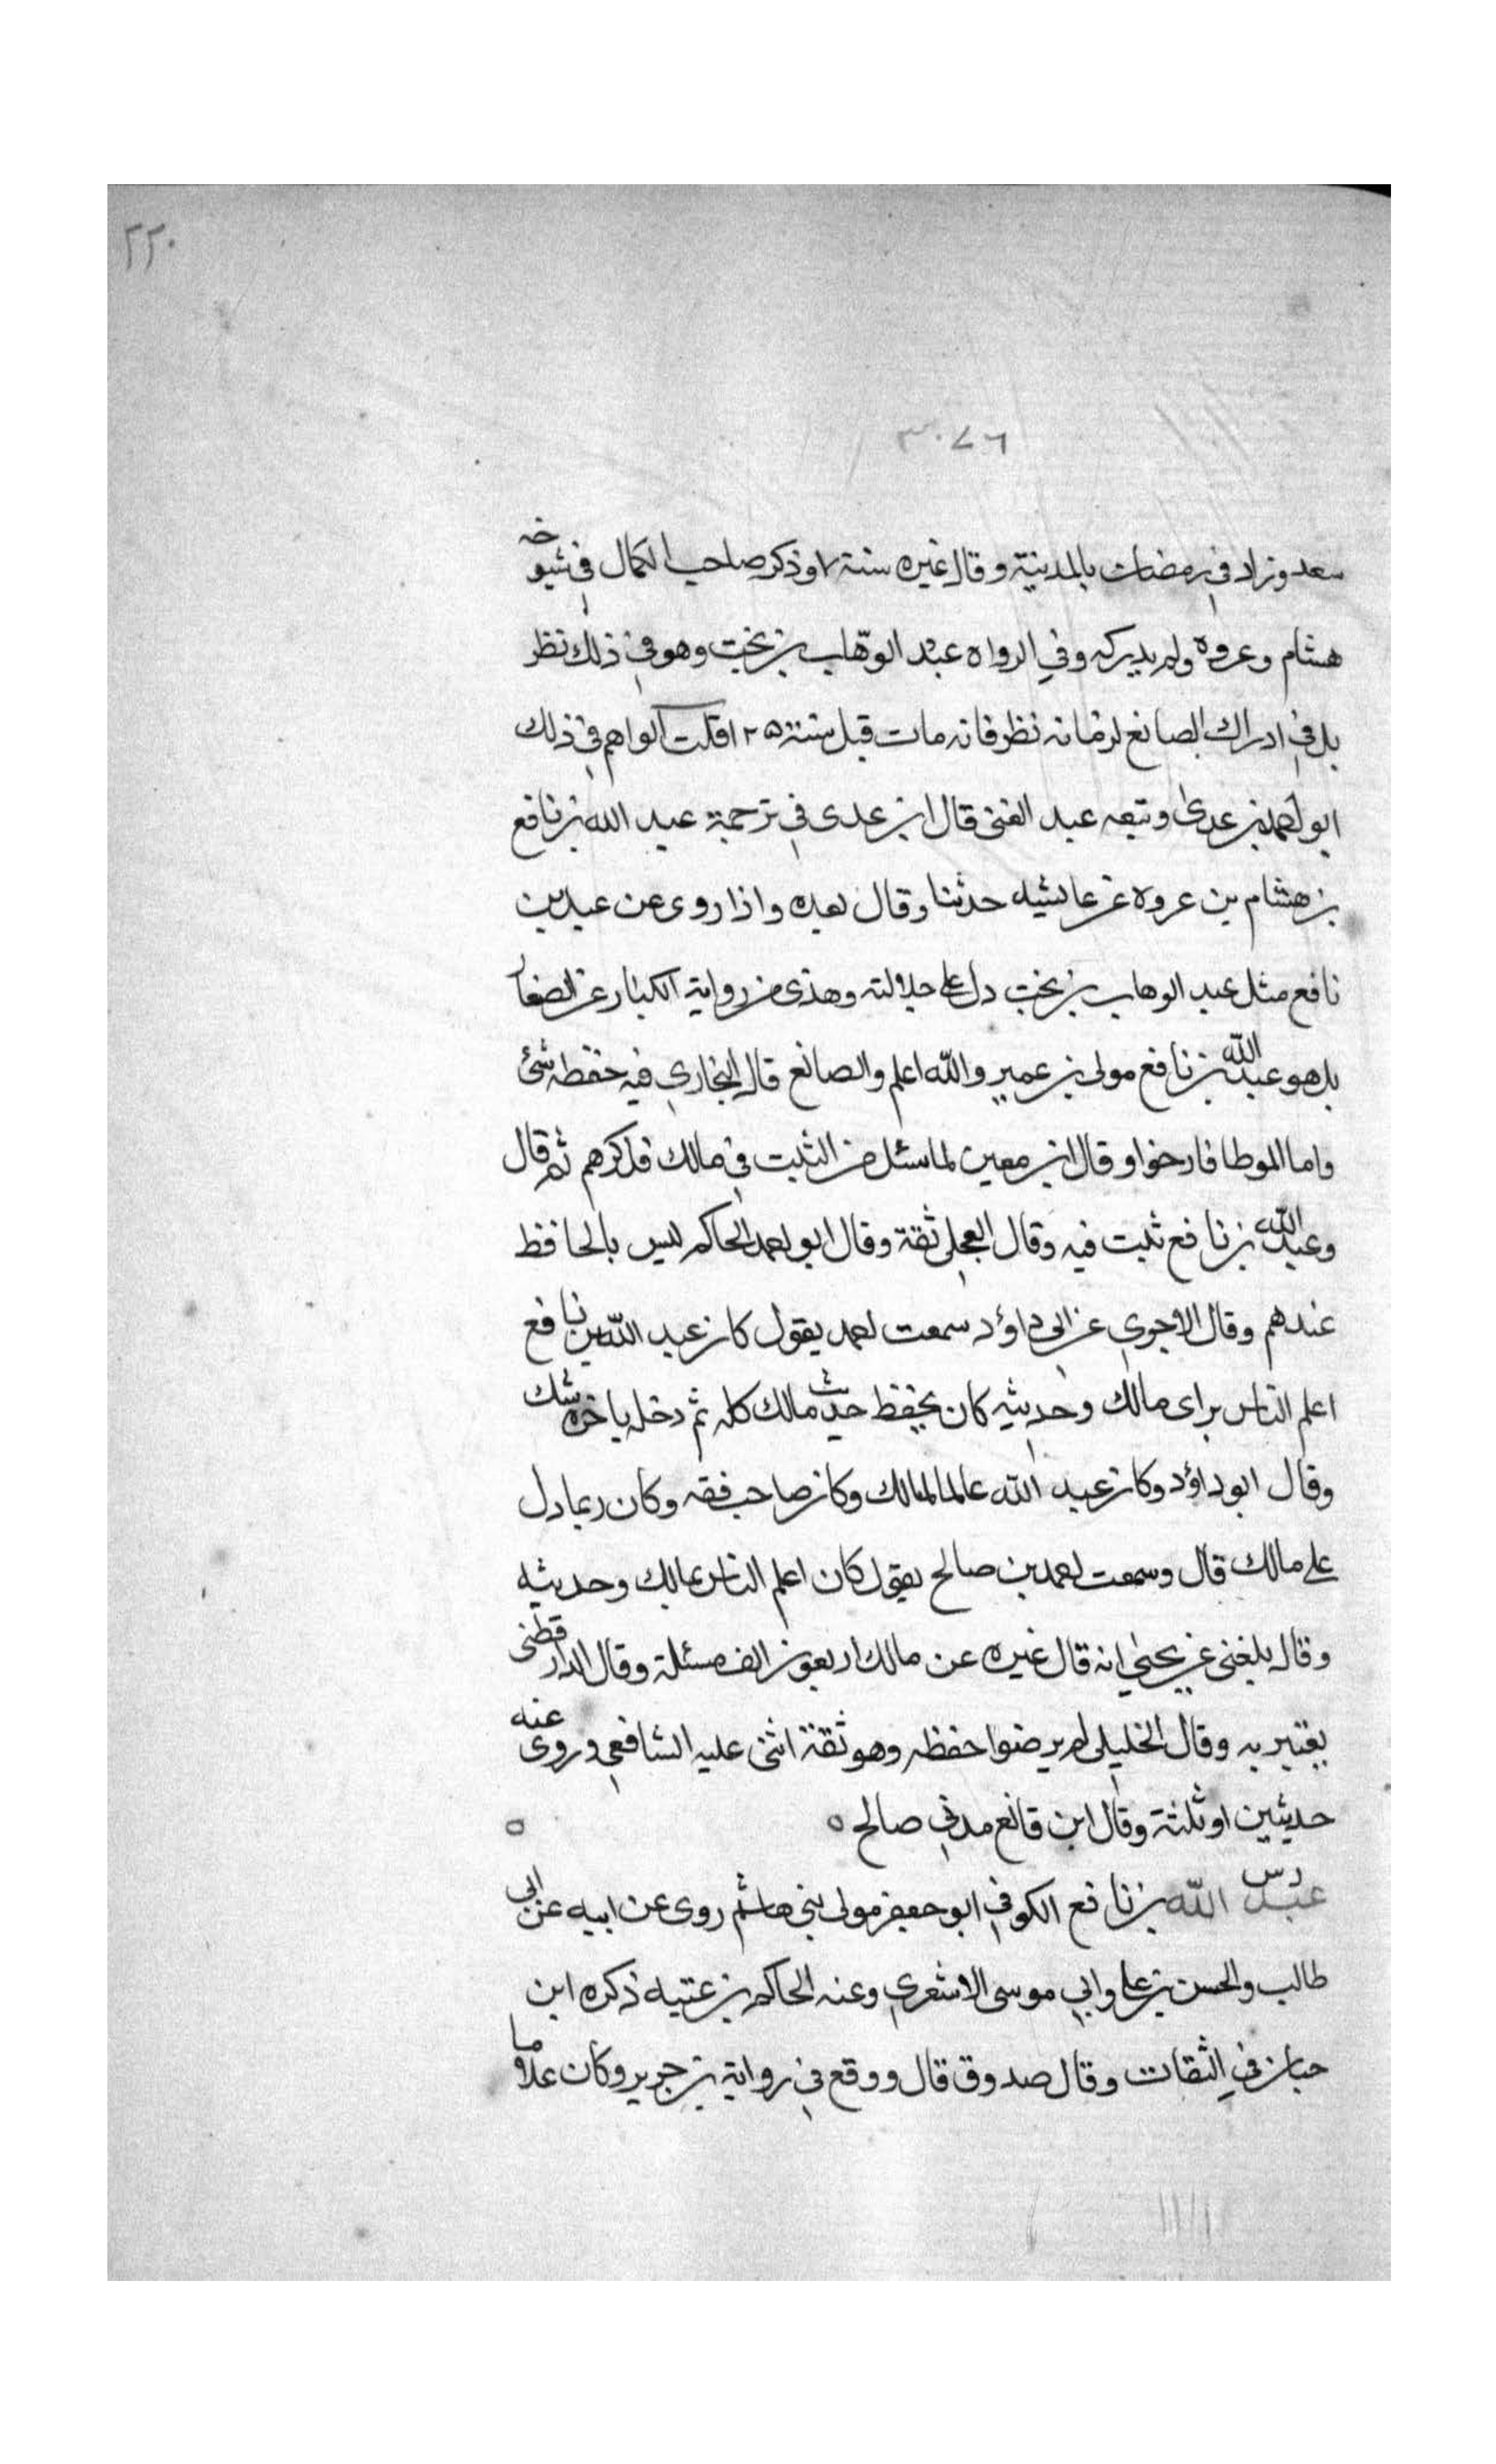 ٢٢٠
٣٠٧٦
سعد وزاد في رمضان بالمدينة وقال غيره سنة ٧ وذكر صاحب الكمال في شيوخه
هشام وعروه ولم يدركه وفي الرواه عبد الوهاب بن بخت وهو في ذلك نظر
بل في ادراك الصانع لزمانه نظر فانه مات قبل سنة ١٢٥ قلت الواهم في ذلك
ابو احمد بن عدى وتبعه عبد الغنى قال ابن عدى في ترجمة عبد الله بن نافع
بن هشام بن عروه عن عايشه حدثنا وقال بعده واذا روى عن عبد بن
نافع مثل عبد الوهاب بن بخت دل على جلالته وهذى من رواية الكبار عن الصغار
بل هو عبد الله بن نافع مولى بن عمير والله اعلم والصانع قال البخاري فيه حفظه شئ
واما الموطا فارجوا وقال ابن معين لما سئل من الثبت في مالك فذكرهم ثم قال
وعبد الله بن نافع ثبت فيه وقال العجلى ثقة وقال ابو احمد الحاكم ليس بالحافظ
عندهم وقال الاجري عن ابى داؤد سمعت احمد يقول كان عبد الله بن نافع
اعلم الناس براى مالك وحديثه كان يحفظ حديث مالك كله ثم دخله باخره شك
وقال ابو داؤد وكان عبد الله عالما لمالك وكان صاحب فقه وكان ربما دل
على مالك قال وسمعت احمد بن صالح يقول كان اعلم الناس بمالك وحديثه
وقال بلغنى عن يحيى انه قال غيره عن مالك اربعون الف مسئلة وقال الدارقطنى
يعتبر به وقال الخليلى لم يرضوا حفظه وهو ثقة اثنى عليه الشافعي وروى عنه
حديثين او ثلثة وقال ابن قانع مدني صالح ه ه
د س
عبد الله بن نافع الكوفي ابو جعفر مولى بني هاشم روى عن ابيه عن ابي
طالب والحسن بن على وابي موسى الاشعري وعنه الحاكم بن عتيبه ذكره ابن
حبان في الثقات وقال صدوق قال ووقع في رواية بن جرير وكان غلاما